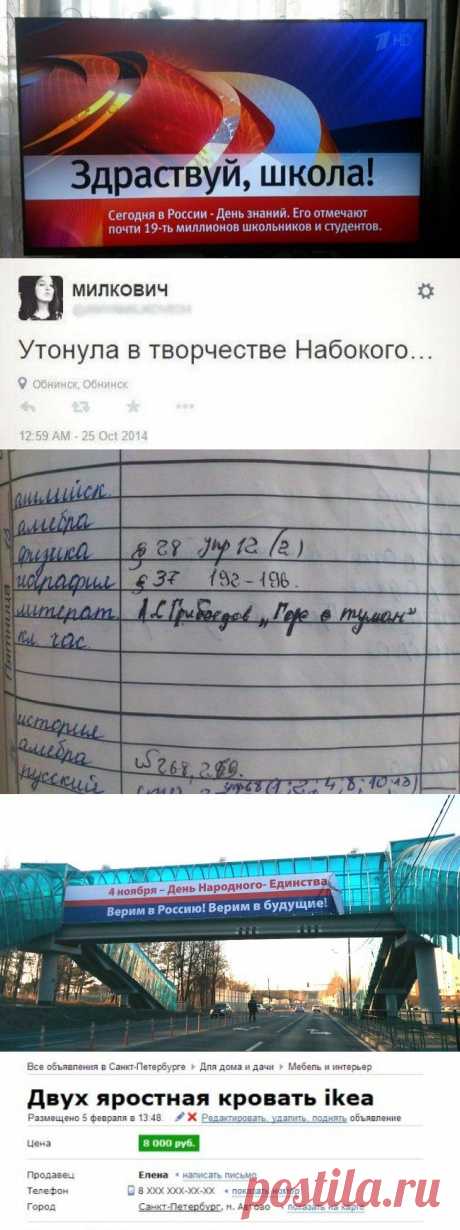 HD
Здраствуй, школа!
Сегодня в России - День знаний. Его отмечают
почти 19-ть миллионов школьников и студентов.
МИЛКОВИЧ
Утонула в творчестве Набокого...
Обнинск, Обнинск
12:59 AM - 25 Oct 2014
английск.
алгебра
физика § 28 упр 12 (2)
география § 37 192-196.
литерат. А.С Грибоедов „Горе о туман"
кл. час.
Пятница
история
алгебра №268, 269.
русский упр68(1; 2; 4; 8; 10; 13)
4 ноября – День Народного- Единства
Верим в Россию! Верим в будущие!
Все объявления в Санкт-Петербурге > Для дома и дачи > Мебель и интерьер
Двух яростная кровать ikea
Размещено 5 февраля в 13:48. Редактировать, удалить, поднять объявление
Цена 8 000 руб.
Продавец Елена • написать письмо
Телефон 8 XXX XXX-XX-XX • показать номер
Город Санкт-Петербург, м. Автово • показать на карте
postila.ru